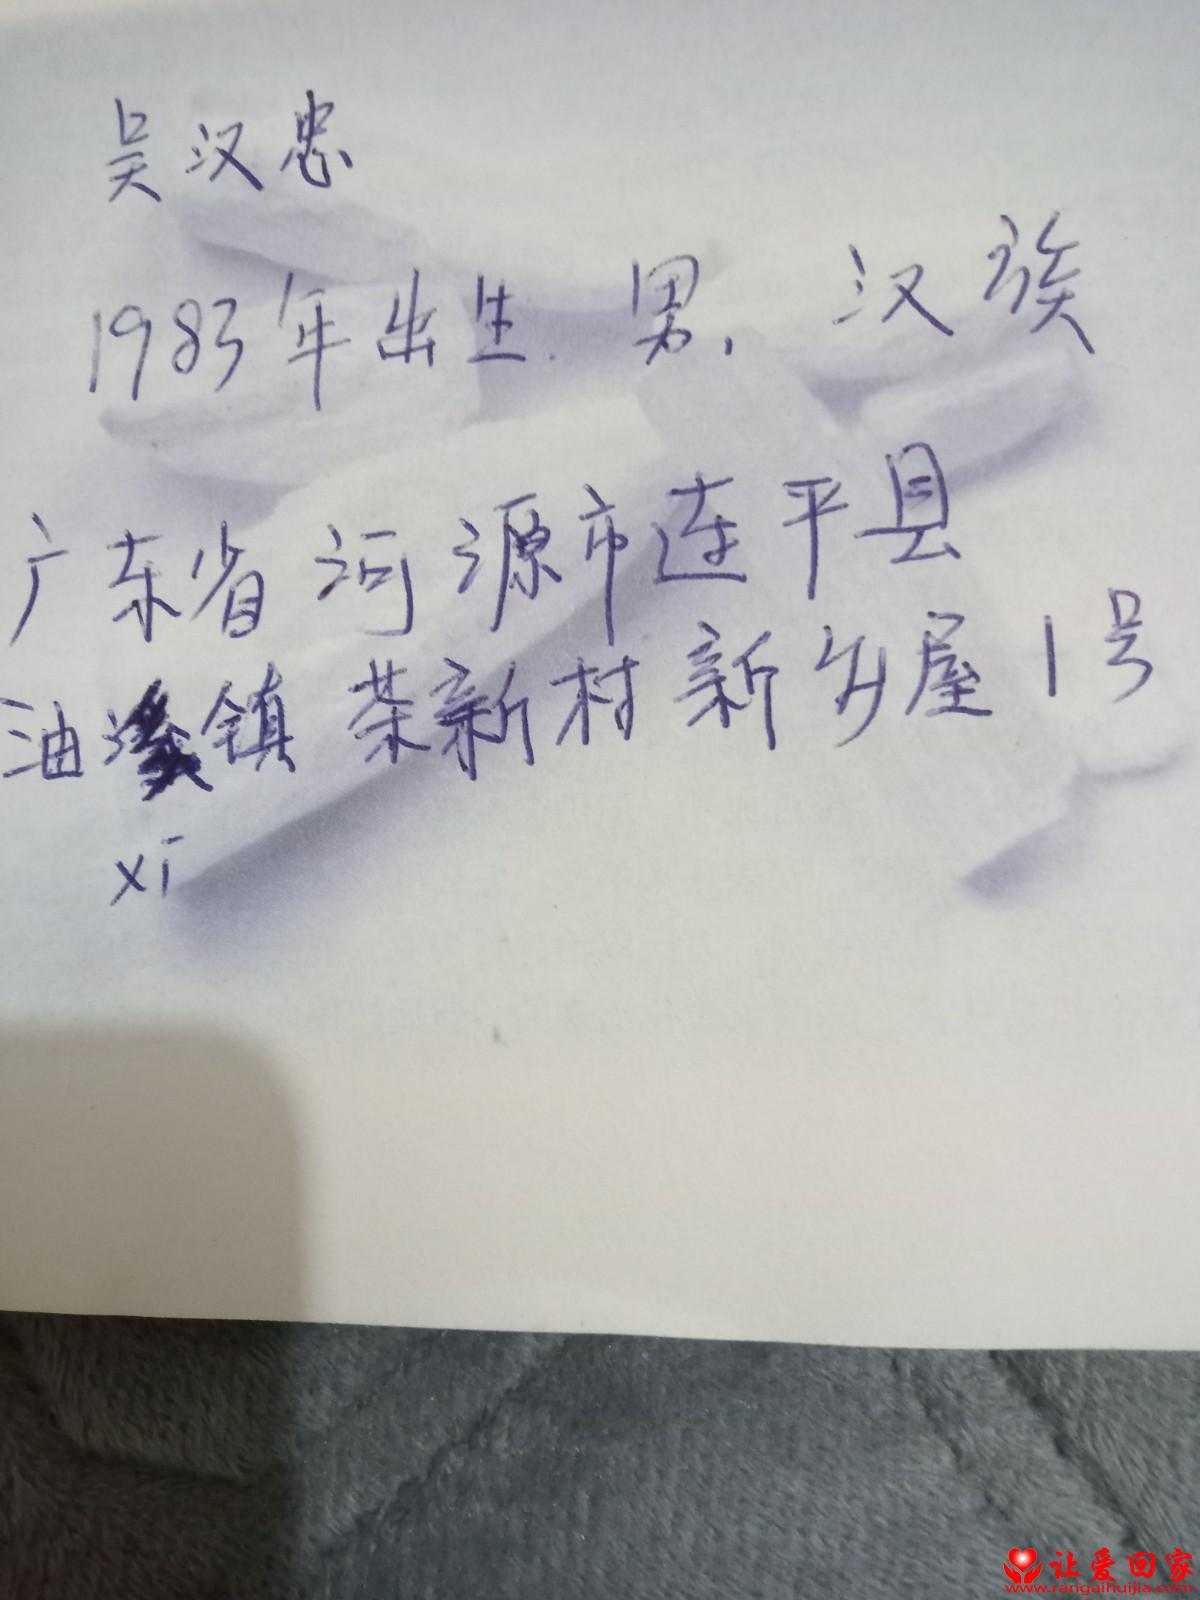 吴汉忠
1983年出生.男,汉族
广东省河源市连平县
油溪镇茶新村新乡屋1号
xi
让爱回家
www.rangaihuijia.com